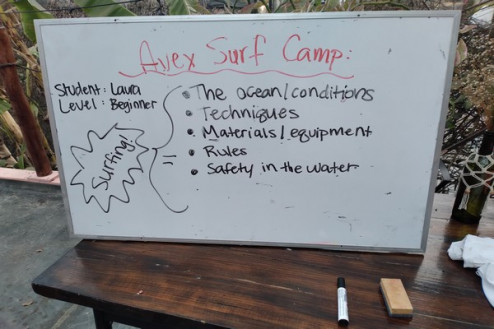 Avex Surf Camp:
Student: Laura
Level: Beginner
Surfing!
=
• The ocean/conditions
• Techniques
• Materials/equipment
• Rules
• Safety in the water